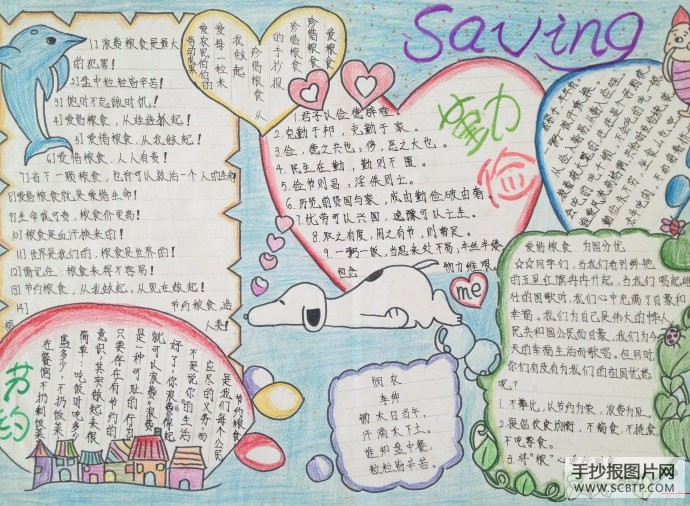 Saving
1]浪费粮食是最大
的犯罪!
2]盘中粒粒皆辛苦!
3]饱时不忘饿时饥!
4]爱惜粮食,从娃娃抓起!
5]爱惜粮食,从我做起!
6]爱惜粮食,人人有责!
7]省下一颗粮食,也许可以救活一个人的生命!
8]爱惜粮食就是爱惜生命!
9]生命诚可贵,粮食价更高!
10]粮食是血汗换来的!
11]世界是我们的,粮食是世界的!
12]请记住:粮食来得不容易!
13]节约粮食,从我做起,从现在做起!
14]
节约粮食,造
人类!
爱惜粮食
珍惜粮食
珍惜粮食
的手抄报
珍惜粮食从
我做起
爱每一粒米
爱农民伯伯的
劳动成果
勤
俭
1.君子以俭德辟难。
2.克勤于邦,克勤于家。
3.俭,德之共也;侈,恶之大也。
4.民生在勤,勤则不匮。
5.俭节则昌,淫佚则亡。
6.历览前贤国与家,成由勤俭破由奢
7.忧劳可以兴国,逸豫可以亡身。
8.取之有度,用之有节,则常足。
9.一粥一饭,当思来处不易;半丝半缕
恒念
物力维艰。
me
节约
节约粮食
是我们每个公民
应尽的义务,而
不是说你的生活
好了,你浪费得起
就可以浪费。浪费
是一种可耻的行为
只要存在有节约的
意识,其实做起来很
简单:吃饭时吃多少
盛多少,不扔饭菜
在餐馆不扔剩饭菜
悯农
李绅
锄禾日当午。
汗滴禾下土。
谁知盘中餐,
粒粒皆辛苦。
爱惜粮食 为国分忧
☆☆同学们,当我们看到鲜艳
的五星红旗冉冉升起,当我们唱起雄
壮的国歌时,我们心中充满了自豪和
幸福。我们为自己是伟大的中华人
民共和国公民而自豪,我们为今
天的幸福生活而歌唱。但同时
你们有没有为我们的祖国忧愁
呢?
1.不攀比,以节约为荣,浪费为耻。
2.提倡饮食均衡,不偏食,不挑食,
不吃零食。
手抄报图片网
WWW.SCBTP.COM